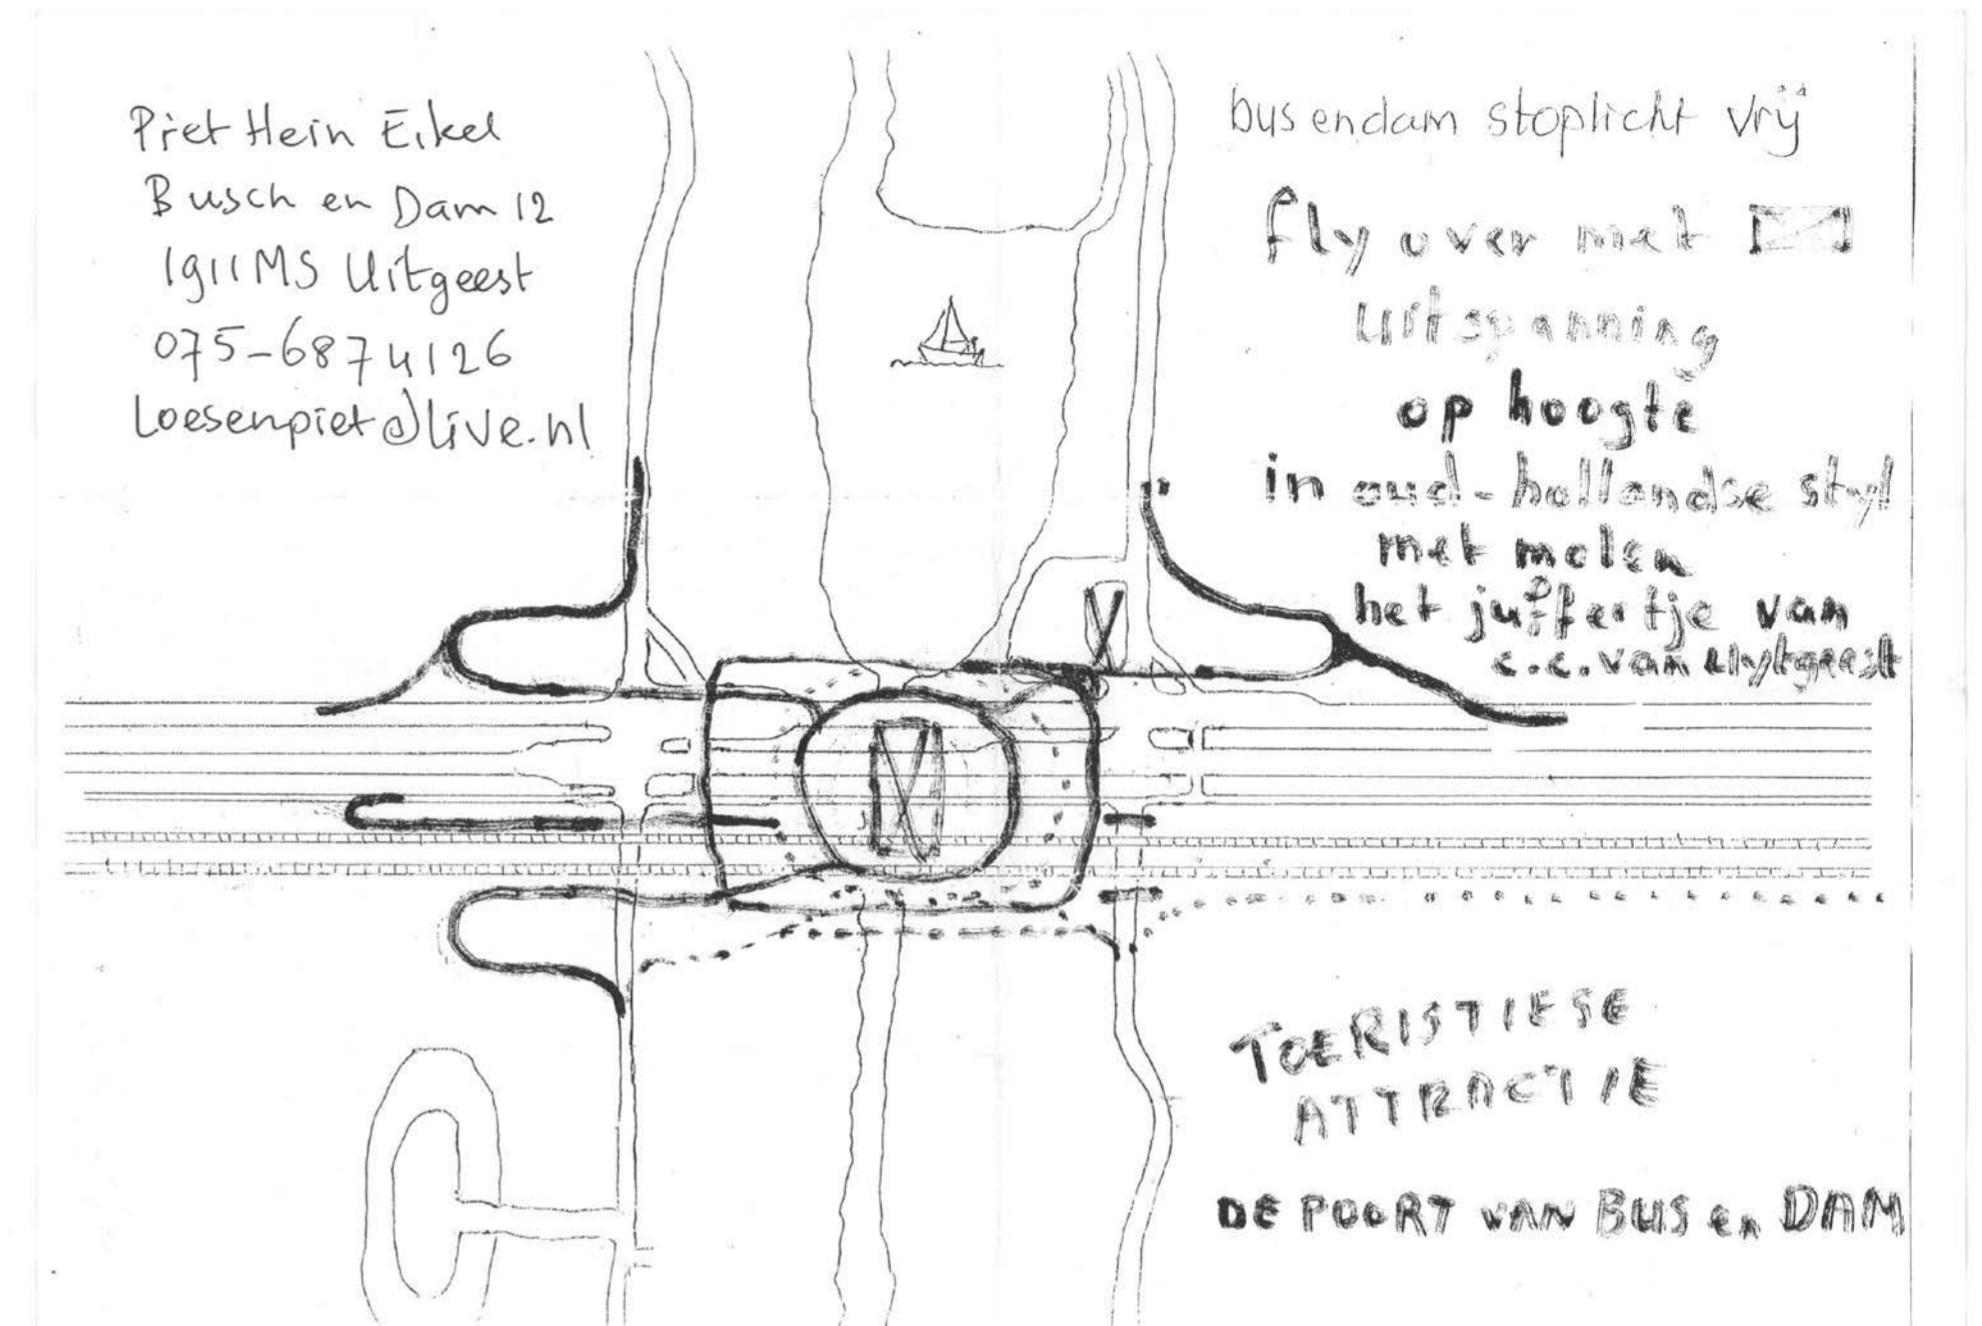 Piet Hein Eikel
Busch en Dam 12
1911MS Uitgeest
075-6874126
Loesenpiet@live.nl
busendam stoplicht vrij
fly over met
uitspanning
op hoogte
in oud-hollandse styl
met molen
het juffertje van
c.c. van Uytgeest
TOERISTIESE
ATTRACTIE
DE POORT VAN BUS en DAM